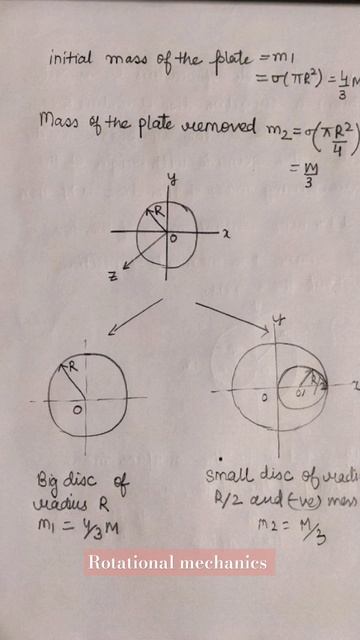 initial mass of the plate = m1
= σ(πR²) = 4/3 M
Mass of the plate removed m2 = σ(πR²/4)
= M/3
y
R
O
x
z
R
O
y
R/2
O
O1
x
Big disc of
radius R
m1 = 4/3 M
Small disc of radi
R/2 and (-ve) mass
m2 = M/3
Rotational mechanics